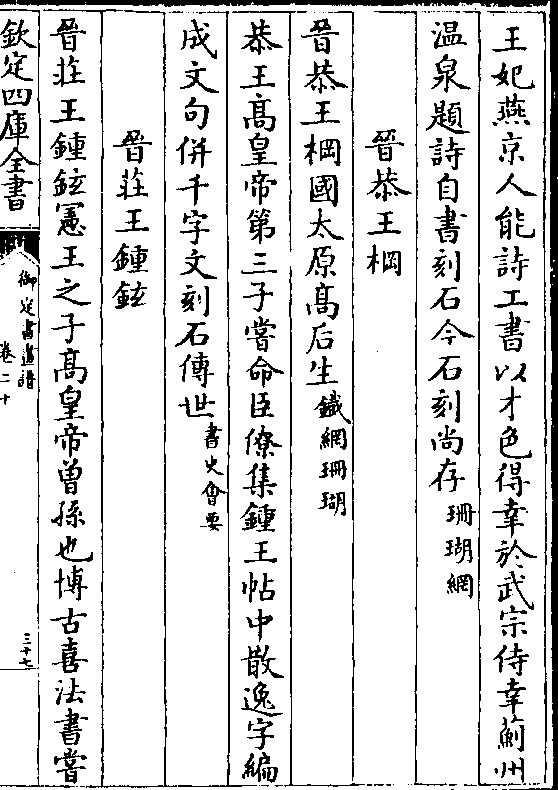 王妃燕京人能詩工書以才色得幸於武宗侍幸薊州
温泉題詩自書刻石今石刻尚存珊瑚網
晉恭王棡
晉恭王棡國太原髙后生鐵網珊瑚
恭王髙皇帝第三子嘗命臣僚集鍾王帖中散逸字編
成文句併千字文刻石傳世書史會要
晉莊王鍾鉉
晉莊王鍾鉉憲王之子髙皇帝曽孫也博古喜法書嘗
欽定四庫全書
御定書畫譜
卷二十
三十七